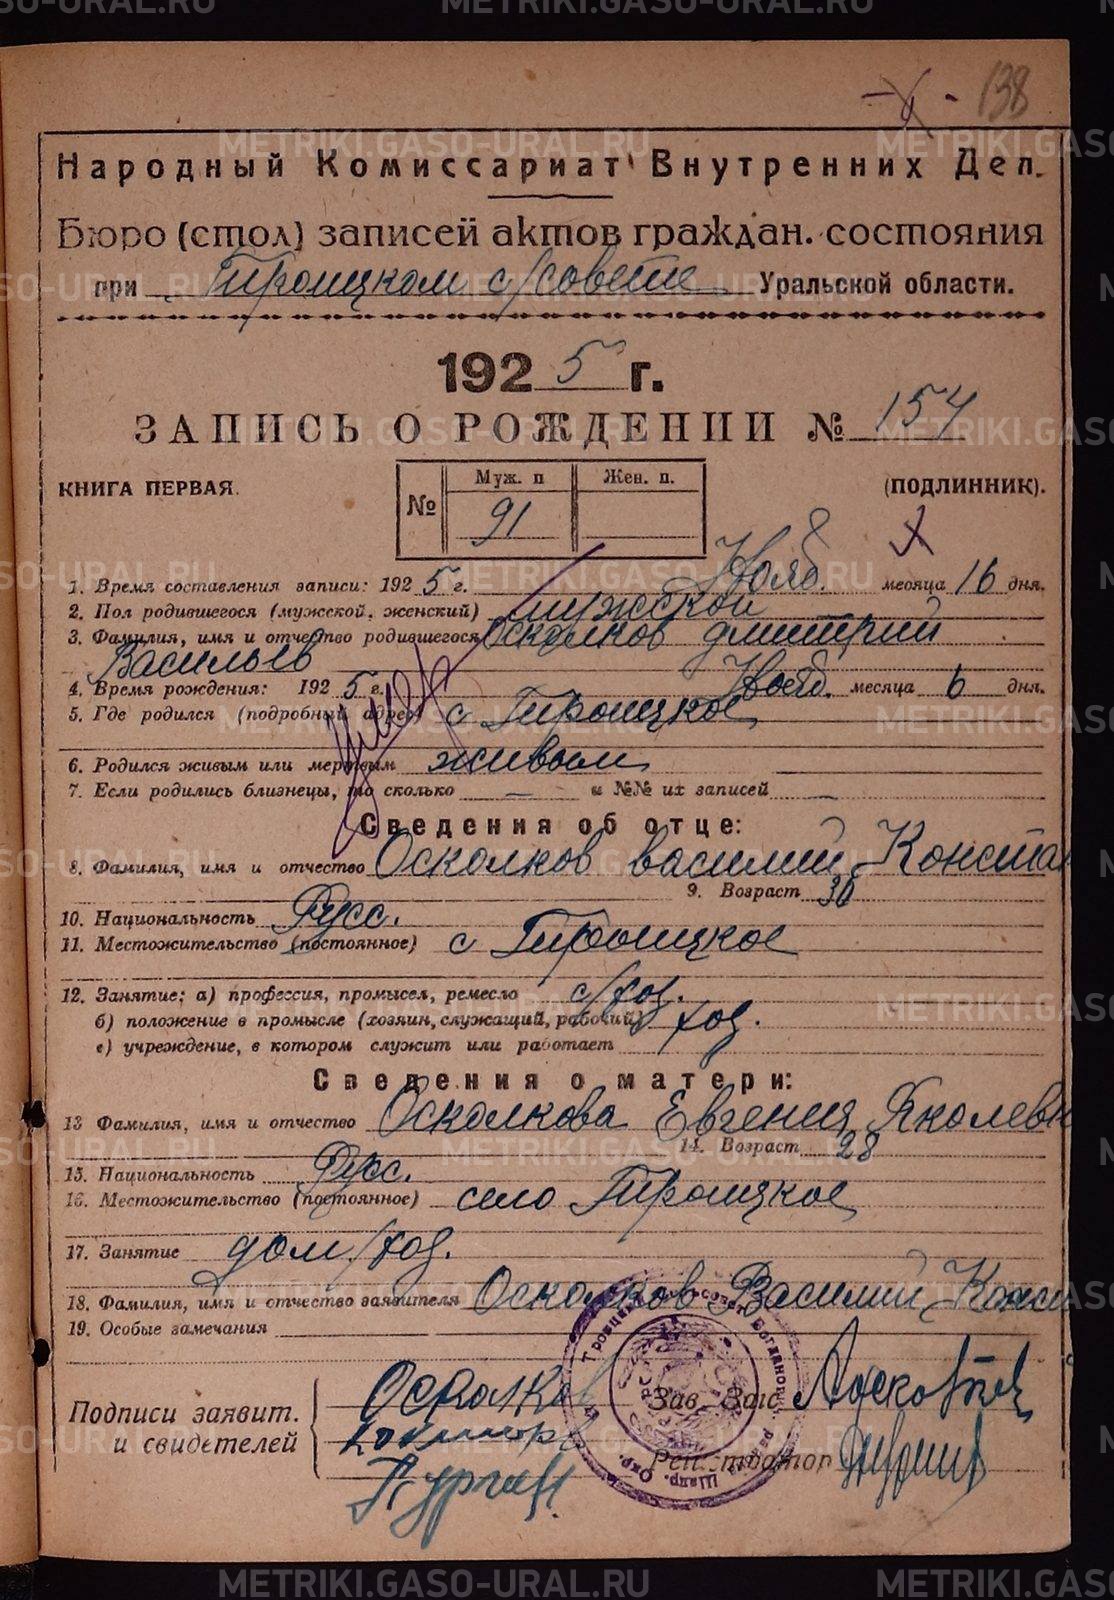 138
Народный Комиссариат Внутренних Дел.
Бюро (стол) записей актов граждан. состояния
при Троицком с/совете Уральской области.
1925 г.
ЗАПИСЬ О РОЖДЕНИИ № 154
КНИГА ПЕРВАЯ. № Муж. п Жен. п. (ПОДЛИННИК).
91
1. Время составления записи: 1925 г. Нояб. месяца 16 дня.
2. Пол родившегося (мужской, женский) мужской
3. Фамилия, имя и отчество родившегося Осколков Дмитрий
Васильев
4. Время рождения: 1925 г. Нояб. месяца 6 дня.
5. Где родился (подробный адрес) с Троицкое
умер
6. Родился живым или мертвым живым
7. Если родились близнецы, то сколько — и №№ их записей —
Сведения об отце:
8. Фамилия, имя и отчество Осколков Василий Констан
9. Возраст 30
10. Национальность Русс.
11. Местожительство (постоянное) с Троицкое
12. Занятие: а) профессия, промысел, ремесло с/хоз.
б) положение в промысле (хозяин, служащий, рабочий) хоз.
в) учреждение, в котором служит или работает
Сведения о матери:
13 Фамилия, имя и отчество Осколкова Евгения Яколевн
14. Возраст 28
15. Национальность Русс.
16. Местожительство (постоянное) село Троицкое
17. Занятие дом/хоз.
18. Фамилия, имя и отчество заявителя Осколков Василий Конс
19. Особые замечания
Подписи заявит. и свидетелей
Осколков
Зав. Загс
Регистратор
METRIKI.GASO-URAL.RU